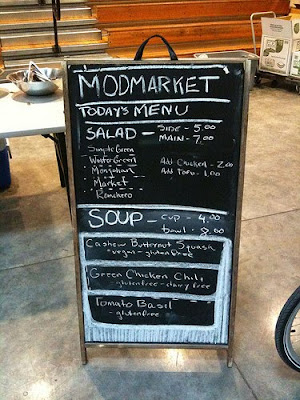 MODMARKET
TODAY'S MENU
SALAD - SIDE - 5.00
MAIN - 7.00
Simple Green
Green
Mongolian Add Chicken - 2.00
Market Add Tofu - 1.00
Ranchero
SOUP - cup - 4.00
bowl -
Cashew Butternut Squash
- vegan - gluten free
Green Chicken Chili
- gluten free - dairy free
Tomato Basil
- gluten free